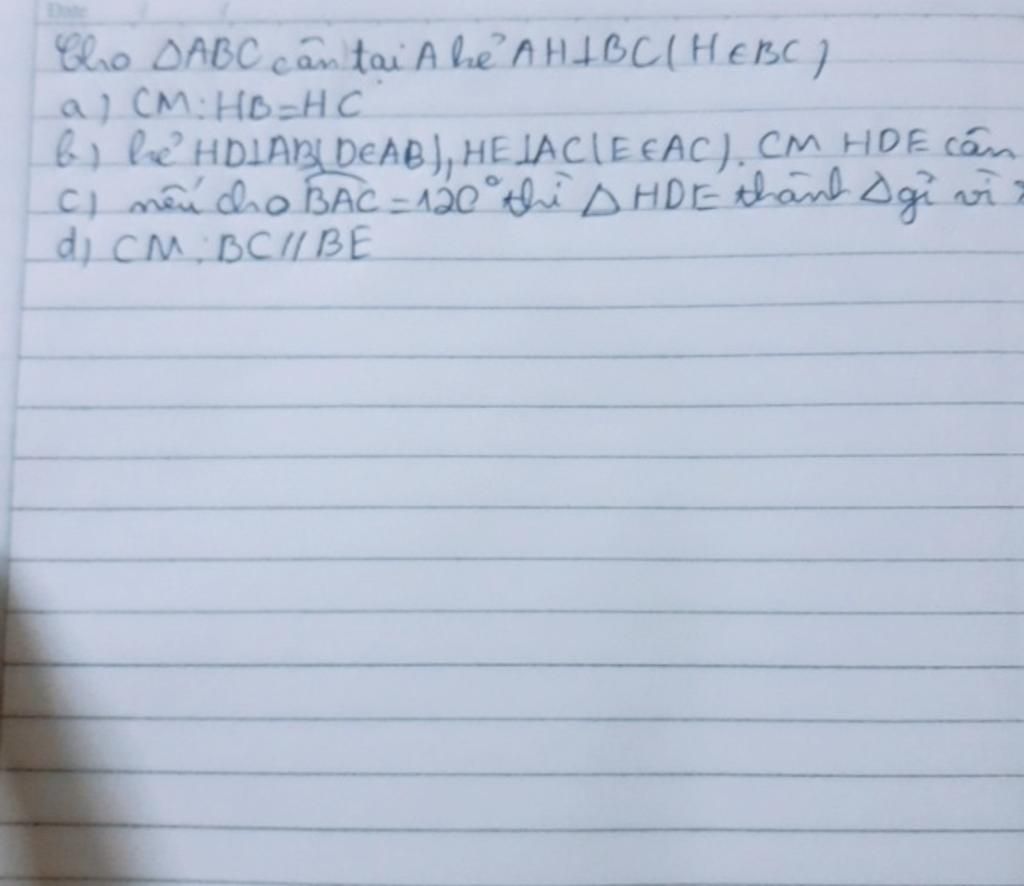 Date
Cho ΔABC cân tại A kẻ AH⊥BC(H∈BC)
a) CM: HB=HC
b) kẻ HD⊥AB(D∈AB), HE⊥AC(E∈AC). CM HDE cân
c) nếu cho BAC = 120° thì Δ HDE thành Δ gì vì
d) CM: BC//BE